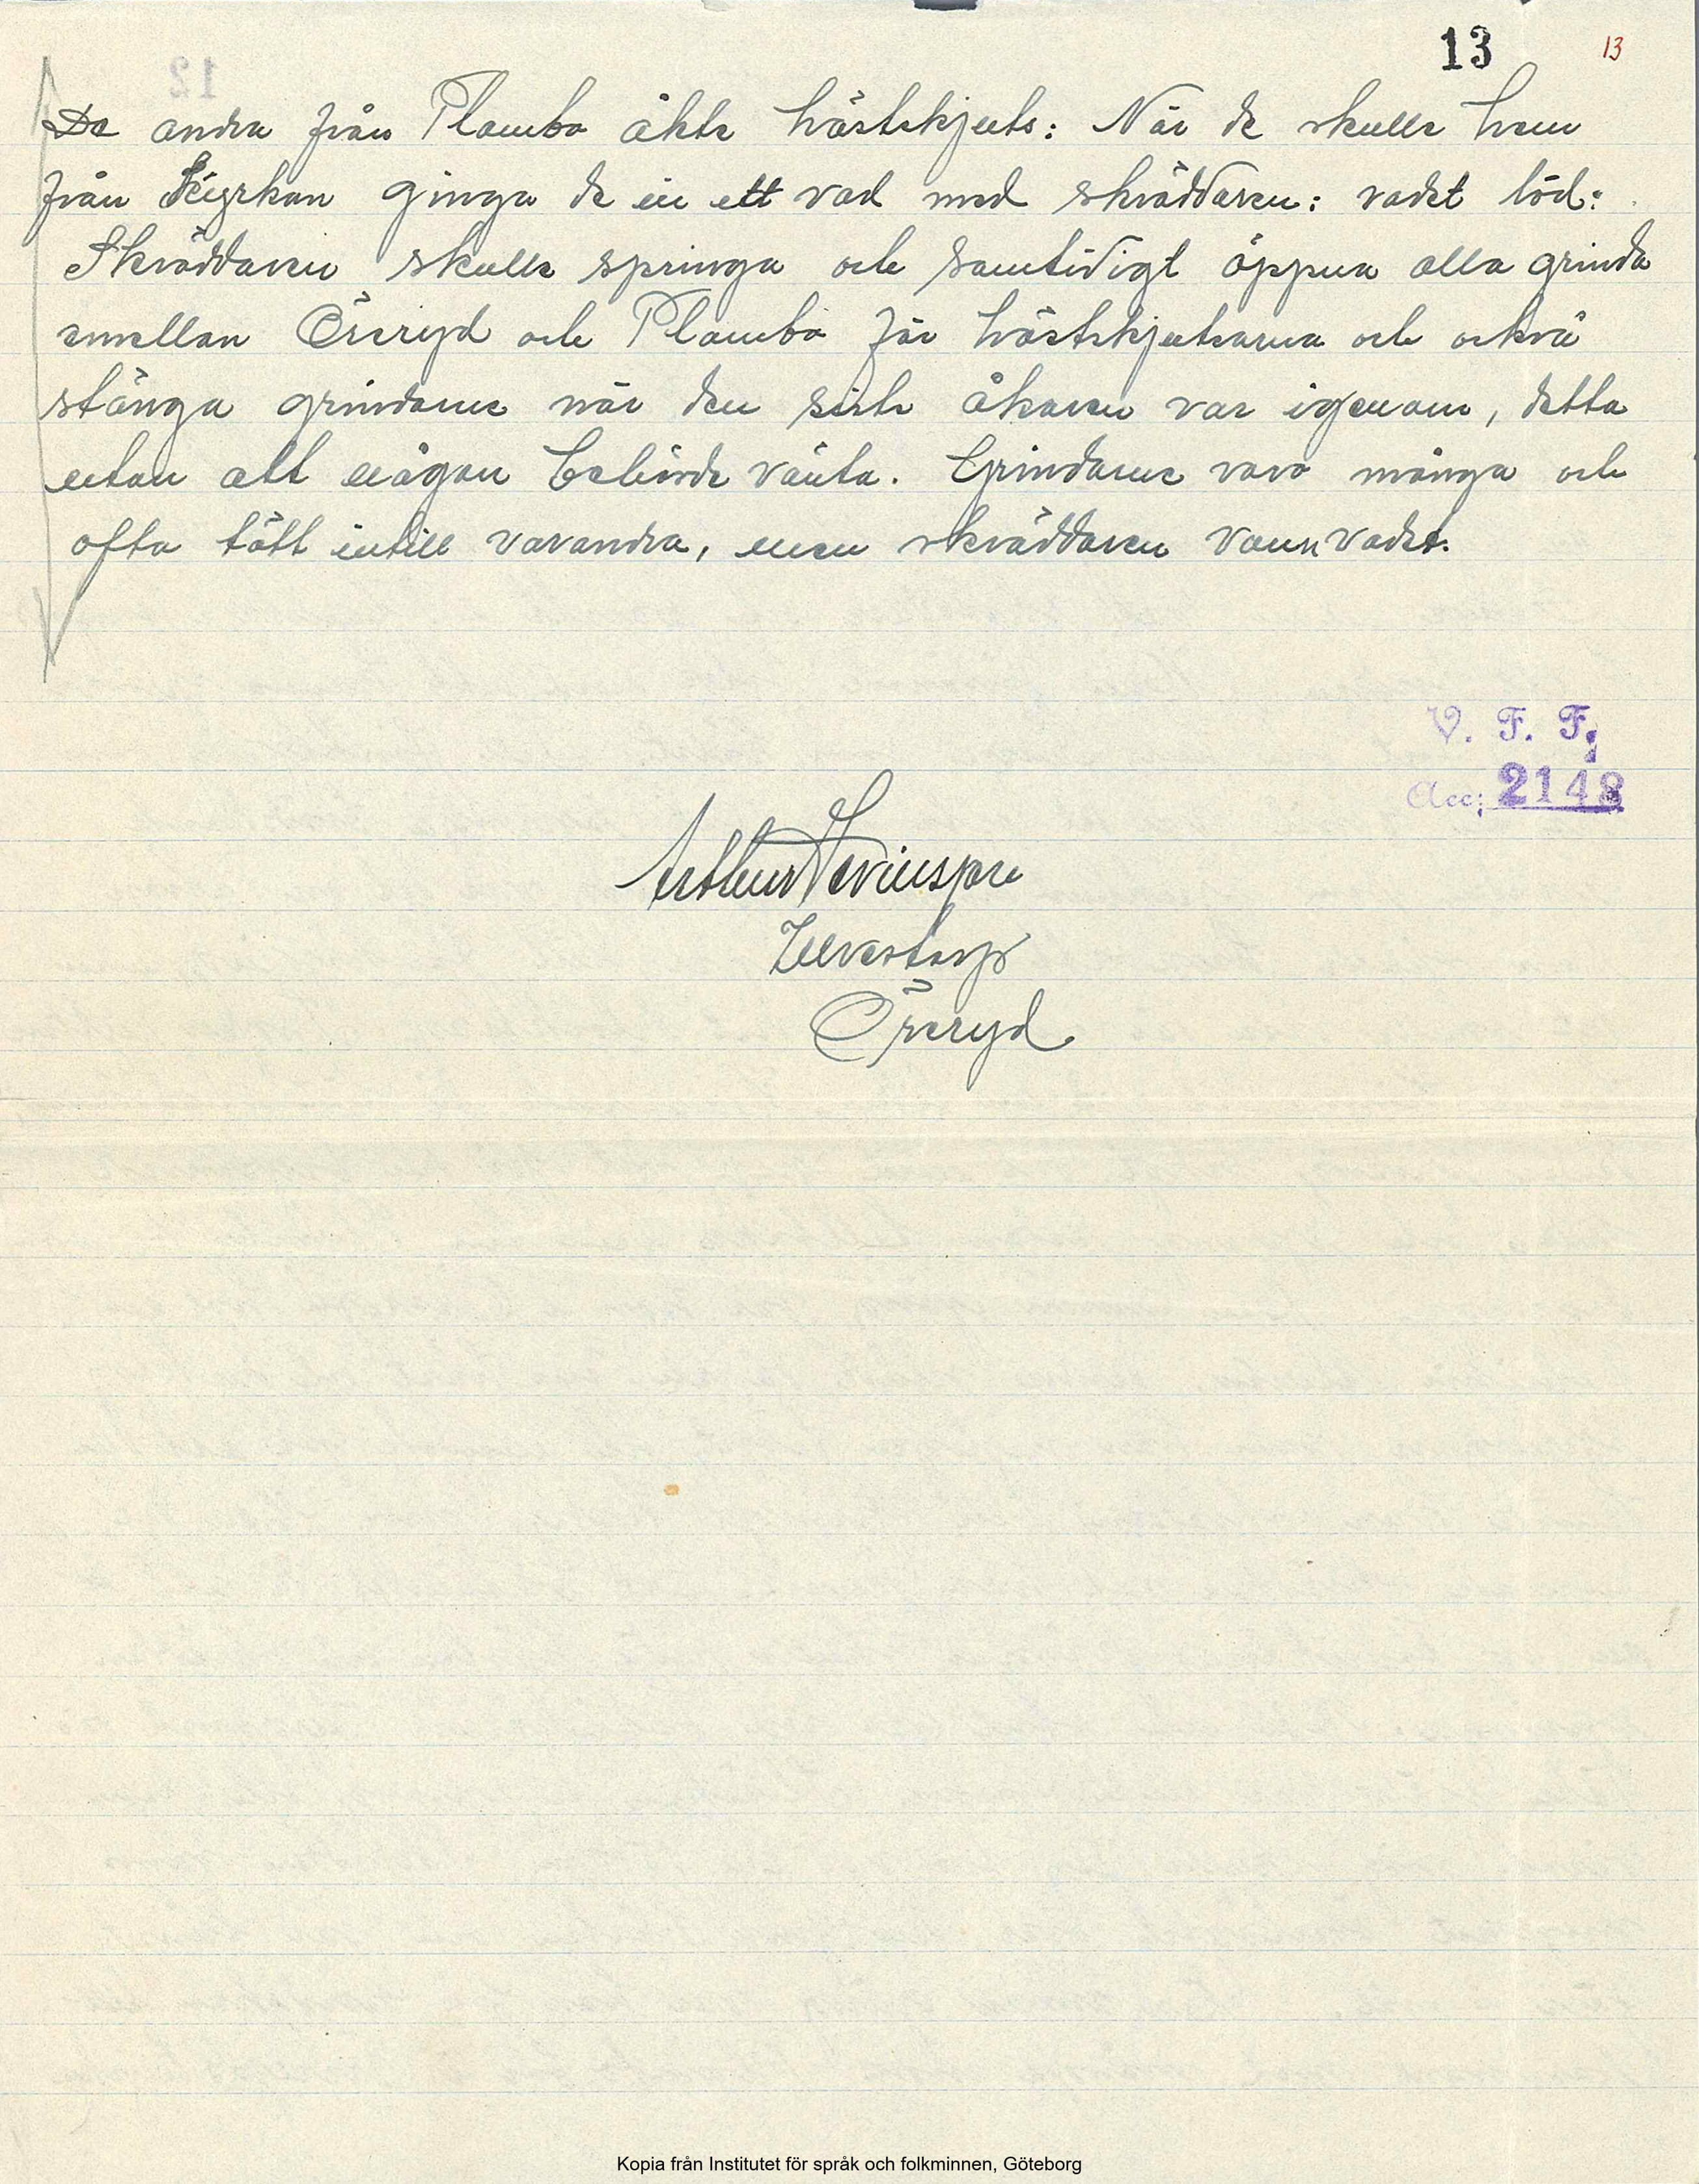 13 13
De andra från Plambo åkte hästskjuts: När de skulle hem
från Kyrkan ginga de in ett vad med skräddaren: vadet löd:
Skräddaren skulle springa och samtidigt öppna alla grinda
emellan Öreryd och Plambo för hästskjutsarna och också
stänga grindarne när den siste åkaren var igenom, detta
utan att någon behövde vänta. Grindarne voro många och
ofta tätt intill varandra, men skräddaren vann vadet.
V. F. F.
Acc: 2148
Arthur
Ulvestorp
Öreryd
Kopia från Institutet för språk och folkminnen, Göteborg